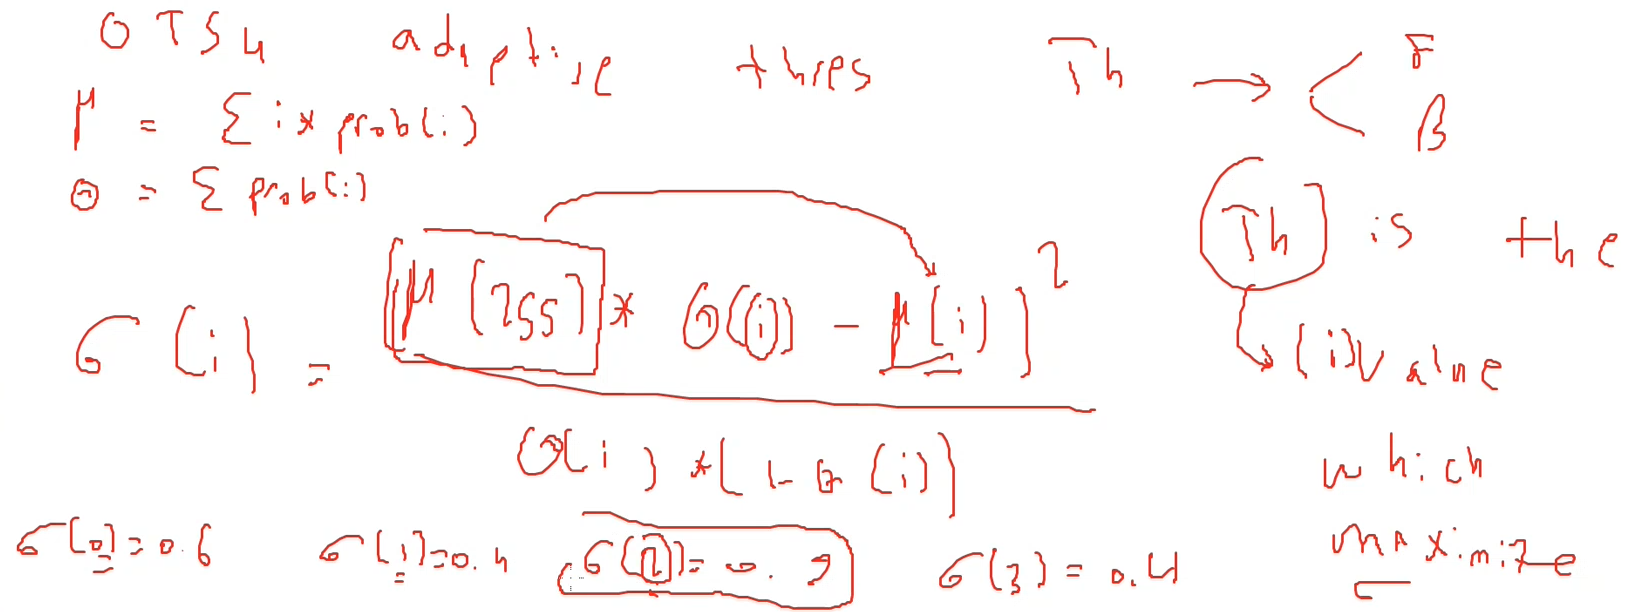 OTSU adaptive thres Th → < F B
μ = Σ i * prob(i)
Θ = Σ prob(i)
Th is the
σ(i) = [μ[255] * Θ(i) - μ(i)]²
Θ(i) * (1-Θ(i))
(i) Value
which
maximize
σ(0) = 0.6 σ(1) = 0.4 σ(2) = 0.9 σ(3) = 0.4